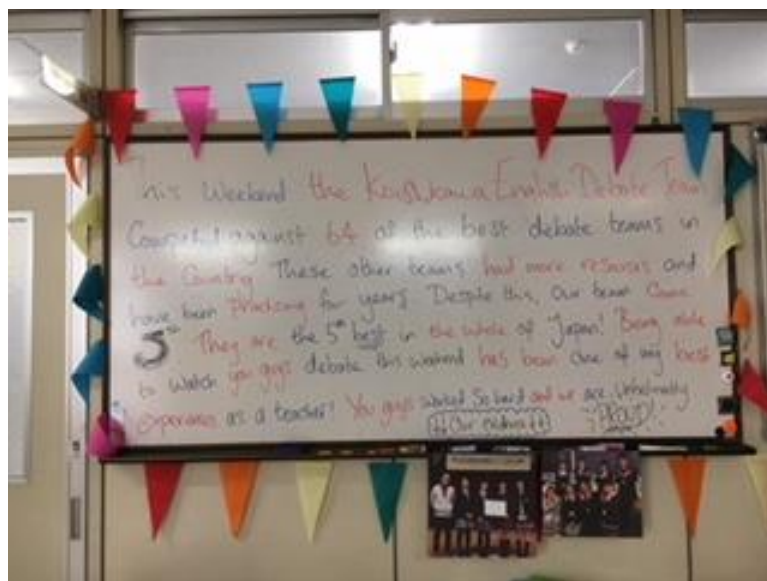 This Weekend the English Debate Team
Competed against 64 of the best debate teams in
the Country These other teams had more resources and
have been practicing for years. Despite this, Our team Came
5th They are the 5th best in the whole of Japan! Being able
to watch you guys debate this weekend has been One of my best
experiences as a teacher! You guys worked So hard and we are
PROUD!